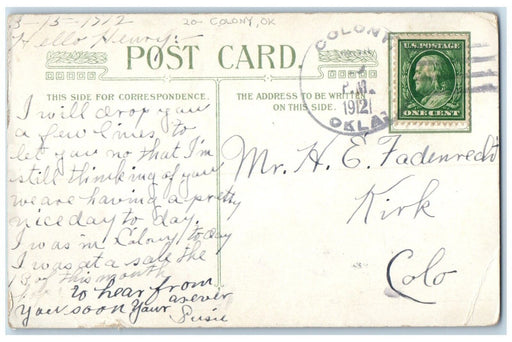 3-13-1912
20- COLONY, OK
Hello Henry:-
POST CARD.
THIS SIDE FOR CORRESPONDENCE.
THE ADDRESS TO BE WRITTEN
ON THIS SIDE.
COLONY
P.M.
1912
OKLA.
U.S. POSTAGE
ONE CENT
I will drop you
a few lines to
let you no that I'm
still thinking of you
we are having a pretty
nice day to day.
I was in Colony today
I was at a sale the
of this month
to hear from
you soon Your as ever
Susie
Mr. H. E. Fadenrecht
Kirk
Colo